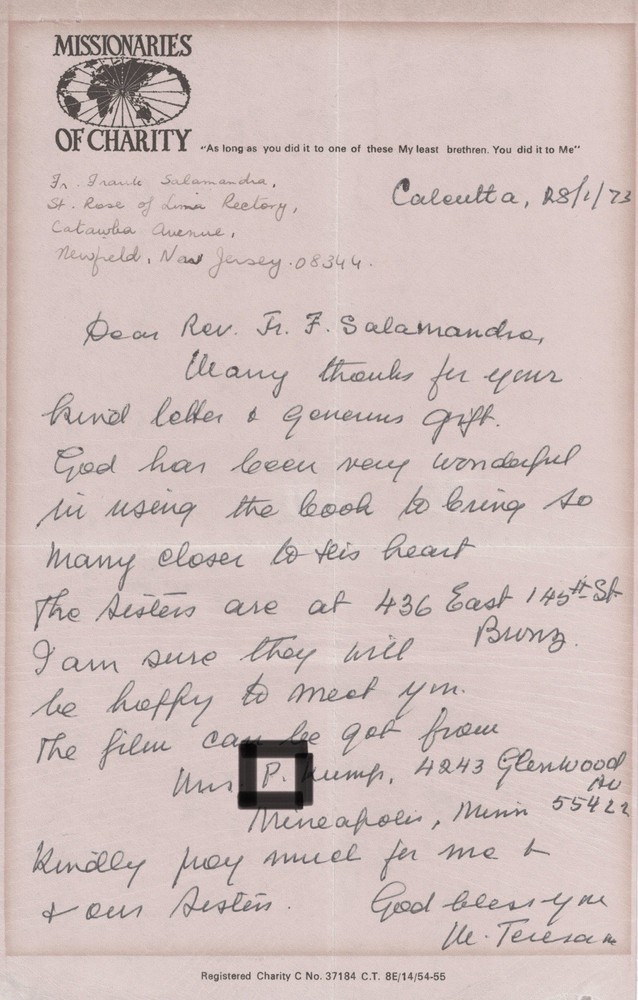 MISSIONARIES
OF CHARITY
"As long as you did it to one of these My least brethren. You did it to Me"
Fr. Frank Salamandra,
St. Rose of Lima Rectory,
Catawba Avenue,
Newfield, New Jersey. 08344.
Calcutta, 28/1/73
Dear Rev. Fr. F. Salamandra,
Many thanks for your
kind letter & generous gift.
God has been very wonderful
in using the book to bring so
many closer to His heart
The Sisters are at 436 East 145th St
Bronz.
I am sure they will
be happy to meet you.
The film can be got from
Mrs P. Kump, 4243 Glenwood
Av
Mineapolis, Minn 55422
Kindly pray much for me
& our Sisters.
God bless you
M. Teresa mc
Registered Charity C No. 37184 C.T. 8E/14/54-55